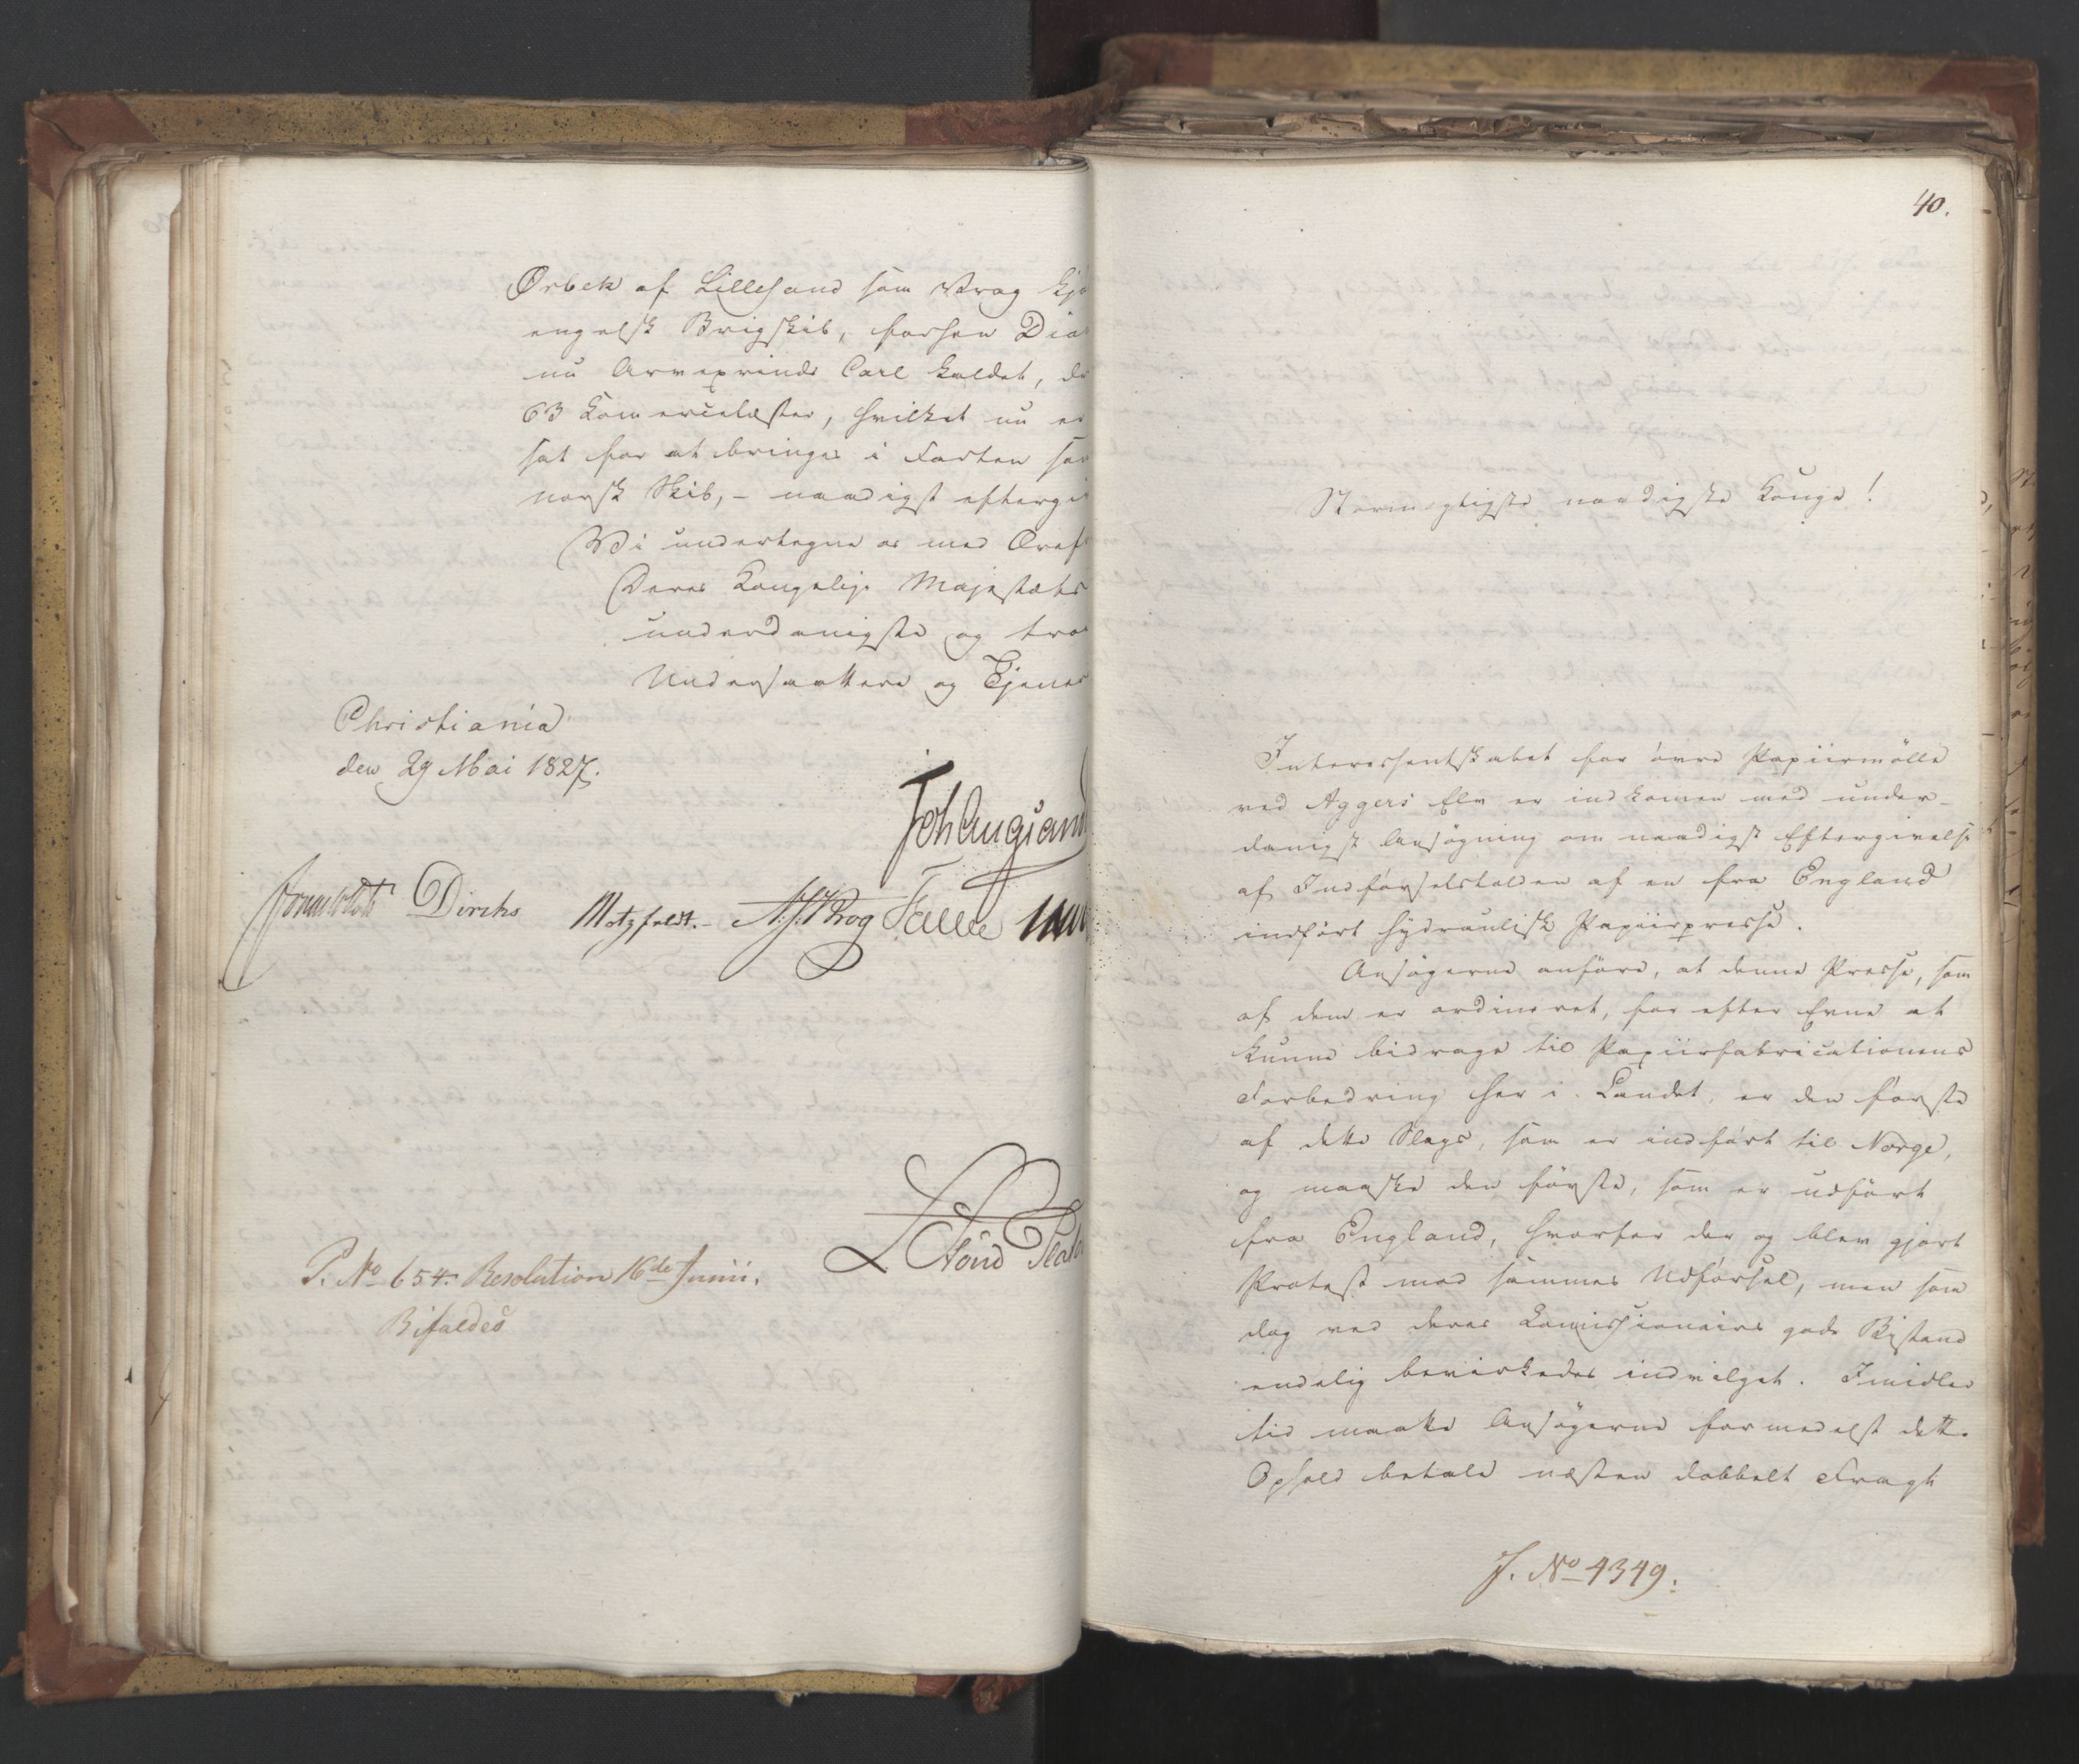 Ørbek af Lillesand som Vrag kjø
engelsk Brigskib, forhen Dia
nu Arveprinds Carl kaldet, dr
63 Komercelæster, hvilket nu er
sat for at bringes i Farten som
norsk Skib, – naadigst eftergi
Vi undertegne os med Ærefr
Deres Kongelige Majestæts
underdanigste og troe
Undersaattere og Tjener
Christiania
den 29 Mai 1827.
Joh Aug Sand
Diriks Motzfeldt.
P. No 654. Resolution 16de Junii.
Bifaldes
40.
Stormægtigste naadigste Konge!
Interessentskabet for øvre Papiirmölle
ved Aggers Elv er indkommen med under-
danigst Ansögning om naadigst Eftergivelse
af Indførselstolden af en fra England
indfört hydraulisk Papiirpresse.
Ansögerne anföre, at denne Presse, som
af dem er ordineret, for efter Evne at
kunne bidrage til Papiirfabricationens
Forbedring her i Landet, er den förste
af dette Slags, som er indfört til Norge,
og maaske den förste, som er udfört
fra England, hvorfor der og blev gjort
Protest mod sammes Udförsel, men som
dog ved deres Komissionairs gode Bistand
endelig bevirkedes indvilget. Imidler
tid maatte Ansögerne formedelst dette
Ophold betale næsten dobbelt Fragt
J. No 4349.